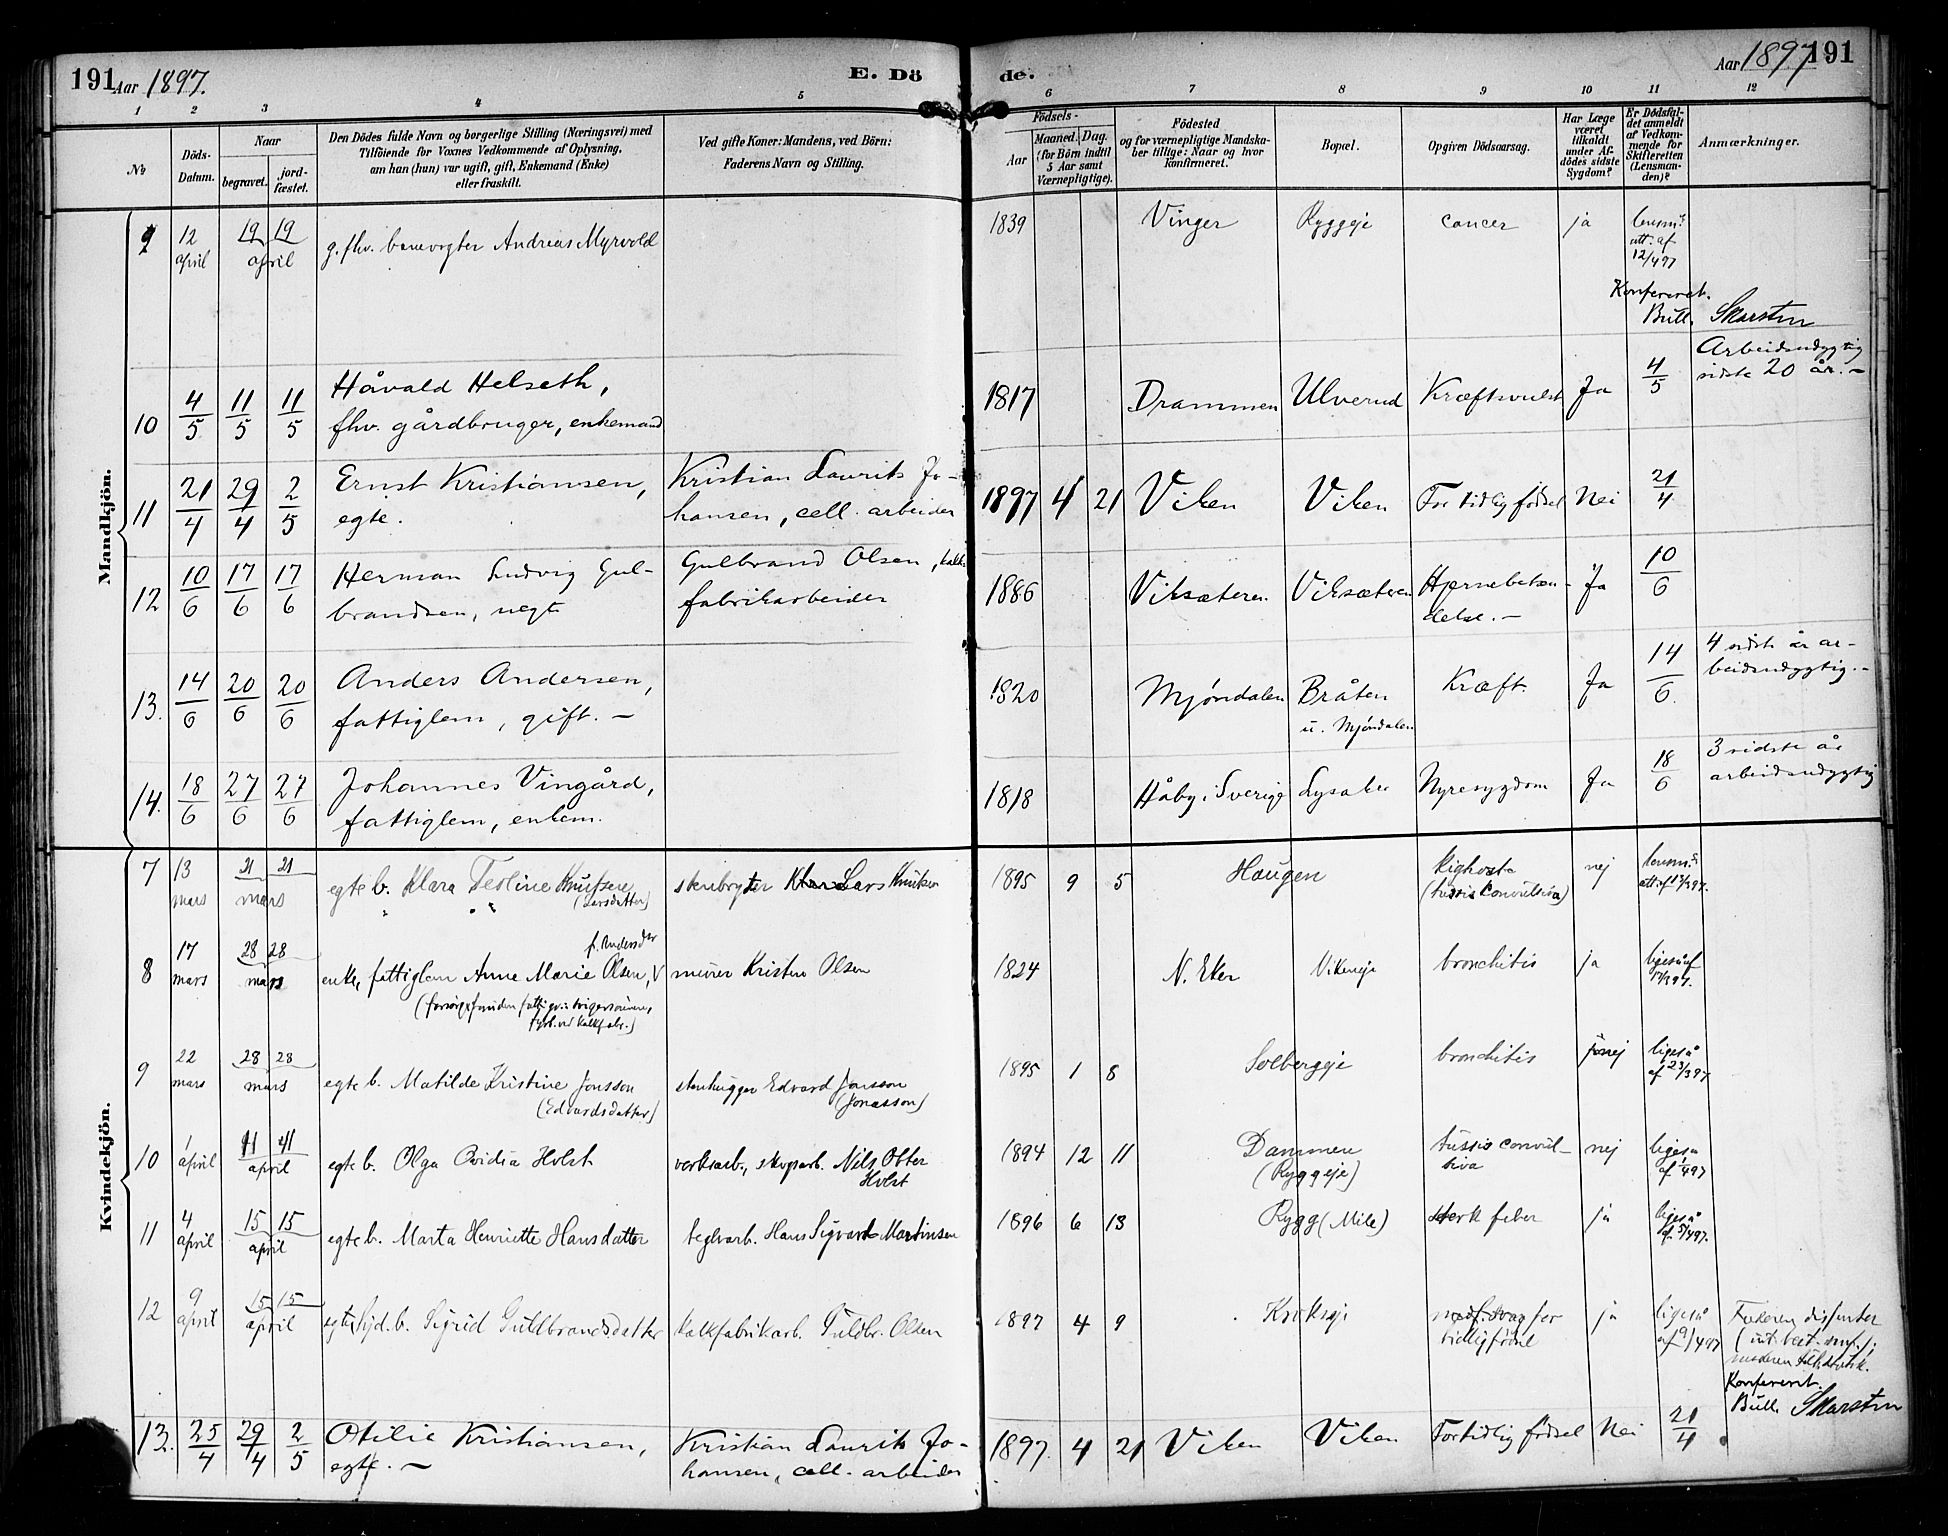 191 Aar 1897. E. Dö de. Aar 1897 191
1 2 3 4 5 6 7 8 9 10 11 12
No
Döds-Datum.
Naar
begravet.
jord-fæstet.
Den Dödes fulde Navn og borgerlige Stilling (Næringsvei) med
Tilföiende for Voxnes Vedkommende af Oplysning,
om han (hun) var ugift, gift, Enkemand (Enke)
eller fraskilt.
Ved gifte Koner: Mandens, ved Börn:
Faderens Navn og Stilling.
Födsels-
Aar
Maaned. Dag.
(for Börn indtil
5 Aar samt
Værnepligtige).
Födested
og for værnepligtige Mandska-
ber tillige: Naar og hvor
konfirmeret.
Bopæl.
Opgiven Dödsaarsag.
Har Læge
været
tilkaldt
under Af-
dödes sidste
Sygdom?
Er Dödsfal-
det anmeldt
af Vedkom-
mende for
Skifteretten
(Lensman-
den)?
Anmærkninger.
Mandkjön.
9 12 april 19 19 april g. fhv. banevogter Andreas Myrvold 1839 Vinger Ryggeje cancer ja lensm: att. af 12/4 97
Konfereret.
Bull. Skarsten
10 4/5 11/5 11/5 Håvald Helseth, 1817 Drammen Ulverud Kræftsvulst Ja 4/5 Arbeidsudygtig
fhv. gårdbruger, enkemand sidste 20 år. –
11 21/4 29/4 2/5 Ernst Kristiansen, Kristian Laurits Jo- 1897 4 21 Viken Viken For tidlig fødsel Nei 21/4
egte. hansen, cell. arbeider
12 10/6 17/6 17/6 Herman Ludvig Gul- Gulbrand Olsen, kalk- 1886 Viksæteren Viksæteren Hjernebetæn- Ja 10/6
brandsen, uegte fabrikarbeider delse. –
13. 14/6 20/6 20/6 Anders Andersen, 1820 Mjøndalen Bråten Kræft. Ja 14/6. 4 sidste år ar-
fattiglem, gift. – u. Mjøndalen beidsudygtig. –
14. 18/6 27/6 27/6 Johannes Vingård, 1818 Håby i Sverige Lysaker Nyresygdom Ja 18/6 3 sidste år
fattiglem, enkem. arbeidsudygtig
Kvindekjön.
7 13 mars 21 21 mars egte b. Klara Teoline Knutsen stenbryter Lars Knutsen 1895 9 5 Haugen Kighoste nej lensm:
(Larsdatter) (tussis convulsiva) att. af 13/3 97.
8 17 mars 28 28 mars enke, fattiglem Anne Marie Olsen, f. Andersdtr murer Kristen Olsen 1824 N. Eker Vikeneje bronchitis ja ligeså af 17/3 97.
9 22 mars 28 28 mars egte b. Matilde Kristine Jonsson stenhugger Edvard Jonsson 1895 1 8 Solbergeje bronchitis nej ligeså
(Edvardsdatter) (Jonasson) af 23/3 97
10 1 april 11 11 april egte b. Olga Ovidia Holst verksarb., skogsarb. Nils Otter 1894 12 11 Dammen tussis convul- nej ligeså
Holst (Ryggeje) siva af 1/4 97
11 4 april 15 15 april egte b. Marta Henriette Hansdatter teglvarb. Hans Sigvart Martinsen 1896 6 13 Rygg (Mile) sterk feber ja ligeså
af 5/4 97.
12 9 april 15 15 april egte b. Sigrid Guldbrandsdatter kalkfabrikarb. Guldbr. Olsen 1897 4 9 Krokseje for ja ligeså
tidlig fødsel af 9/4 97
Konfereret.
Bull. Skarsten
13. 25/4 29/4 2/5 Otilie Kristiansen, Kristian Laurits Jo- 1897. 4 21 Viken Viken For tidlig fødsel Nei 21/4
egte. – hansen, cell. arbeider